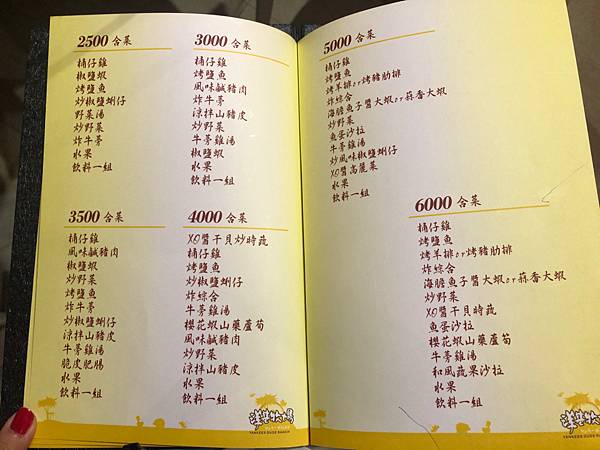 2500 合菜
桶仔雞
椒鹽蝦
烤鹽魚
炒椒鹽蜊仔
野菜湯
炒野菜
炸牛蒡
水果
飲料一組
3000 合菜
桶仔雞
烤鹽魚
風味鹹豬肉
炸牛蒡
涼拌山豬皮
炒野菜
牛蒡雞湯
椒鹽蝦
水果
飲料一組
3500 合菜
桶仔雞
風味鹹豬肉
椒鹽蝦
炒野菜
烤鹽魚
炸牛蒡
炒椒鹽蜊仔
涼拌山豬皮
牛蒡雞湯
脆皮肥腸
水果
飲料一組
4000 合菜
XO醬干貝炒時蔬
桶仔雞
烤鹽魚
炒椒鹽蜊仔
炸綜合
牛蒡雞湯
櫻花蝦山藥蘆筍
風味鹹豬肉
炒野菜
涼拌山豬皮
水果
飲料一組
5000 合菜
桶仔雞
烤鹽魚
烤羊排or烤豬肋排
炸綜合
海膽魚子醬大蝦or蒜香大蝦
炒野菜
魚蛋沙拉
牛蒡雞湯
炒風味椒鹽蜊仔
XO醬高麗菜
水果
飲料一組
6000 合菜
桶仔雞
烤鹽魚
烤羊排or烤豬肋排
炸綜合
海膽魚子醬大蝦or蒜香大蝦
炒野菜
XO醬干貝時蔬
魚蛋沙拉
櫻花蝦山藥蘆筍
牛蒡雞湯
和風蔬果沙拉
水果
飲料一組